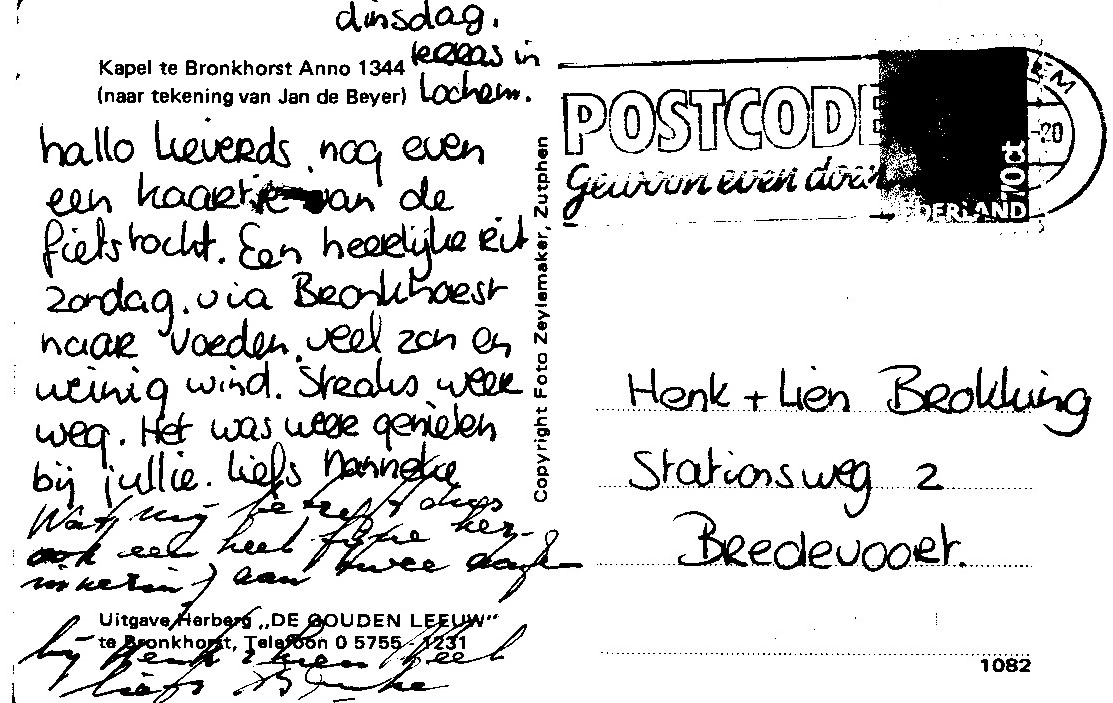 dinsdag.
terras in
Lochem.
Kapel te Bronkhorst Anno 1344
(naar tekening van Jan de Beyer)
hallo lieverds, nog even
een kaartje van de
fietstocht. Een heerlijke rit
zondag. via Bronkhorst
naar Voeden. veel zon en
weinig wind. Straks weer
weg. Het was weer genieten
bij jullie. Liefs Nanneke
Wat mij betreft dus
ook een heel fijne her-
innering aan twee dagen
bij Henk & Lien heel
liefs
Uitgave Herberg „DE GOUDEN LEEUW“
te Bronkhorst, Telefoon 0 5755 - 1231
Copyright Foto Zeylemaker, Zutphen
POSTCODE
Gewoon even doen
-20
70 ct
NEDERLAND
Henk + Lien Brokking
Stationsweg 2
Bredevoort.
1082